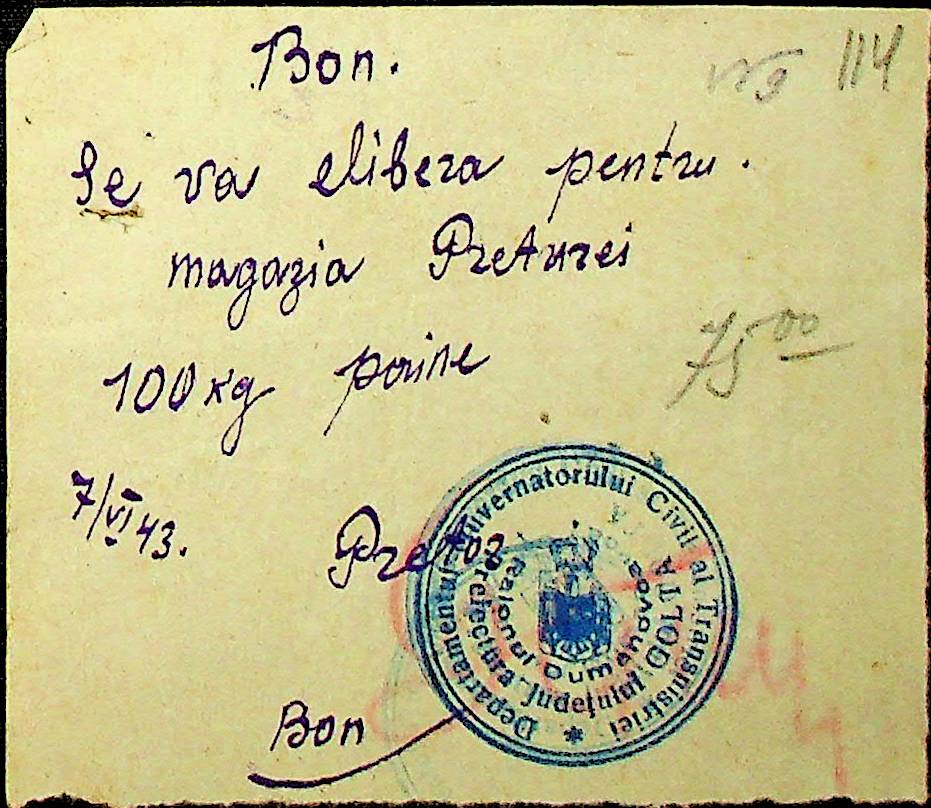 Bon.
№ 114
Se va elibera pentru.
magazia Preturei
100 kg paine
75 00
7/VI 43.
Pretor
Departamentul Guvernatorului Civil al Transnistriei
Prefectura Județului GOLTA
Raionul Dumanovca
Bon